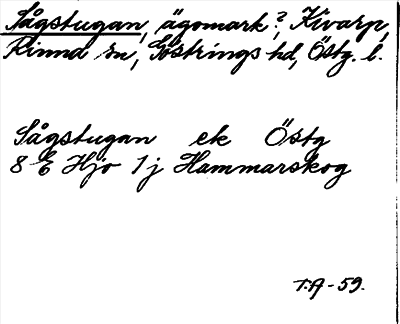 Sågstugan, ägomark?, Kivarp,
Rinna sn, Göstrings hd, Östg. l.
Sågstugan ek Östg
8 E Hjo 1j Hammarskog
T.A-59.